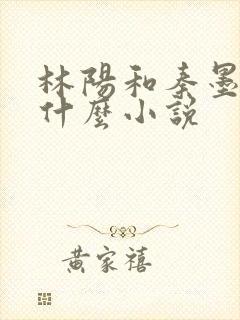 林陽和秦墨
什麼小說
黃家禧